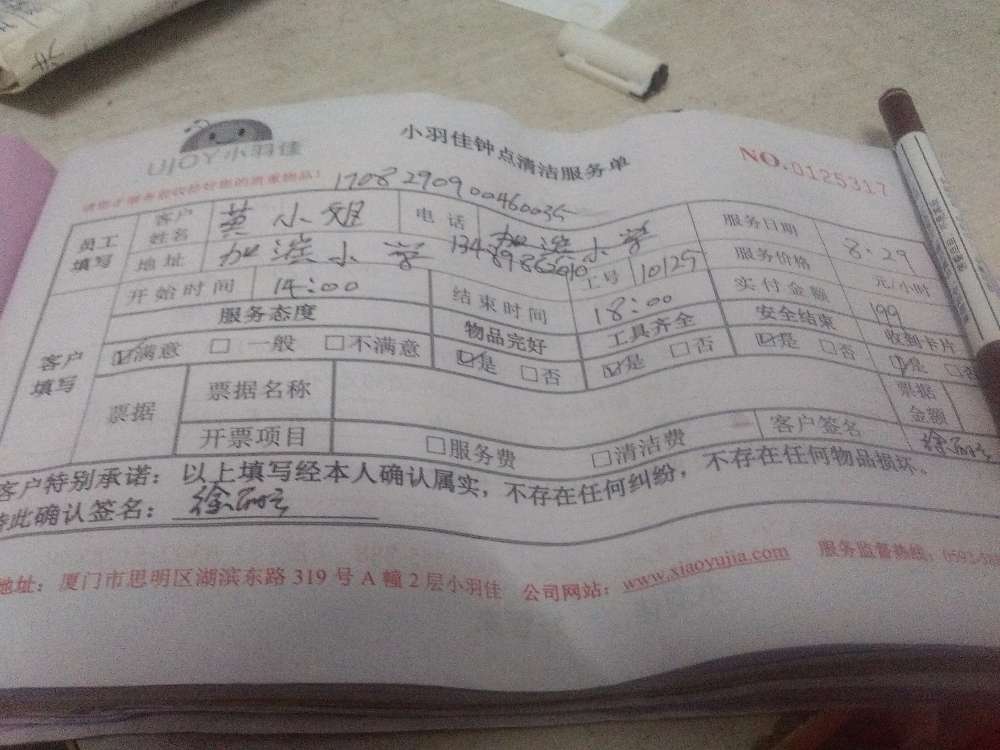 UJOY小羽佳
小羽佳钟点清洁服务单
NO.0125317
170829090046003
员工填写
客户姓名 黄小姐 电话 服务日期 8.29
地址 加滨小学 加滨小学 工号 10125 服务价格 元/小时
客户填写
开始时间 14:00 结束时间 18:00 实付金额 199
服务态度 物品完好 工具齐全 安全结束 收到卡片
☑满意 □一般 □不满意 ☑是 □否 ☑是 □否 ☑是 □否 ☑是 □否
票据 票据名称 票据金额
开票项目 □服务费 □清洁费 客户签名
客户特别承诺：以上填写经本人确认属实，不存在任何纠纷，不存在任何物品损坏。
特此确认签名：
地址：厦门市思明区湖滨东路 319 号 A 幢 2 层小羽佳 公司网站：www.xiaoyujia.com 服务监督热线：0592-